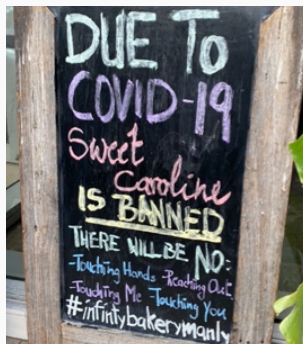 DUE TO
COVID-19
Sweet
Caroline
IS BANNED
THERE WILL BE NO:
-Touching Hands -Reaching Out
-Touching Me -Touching You
#infintybakerymanly